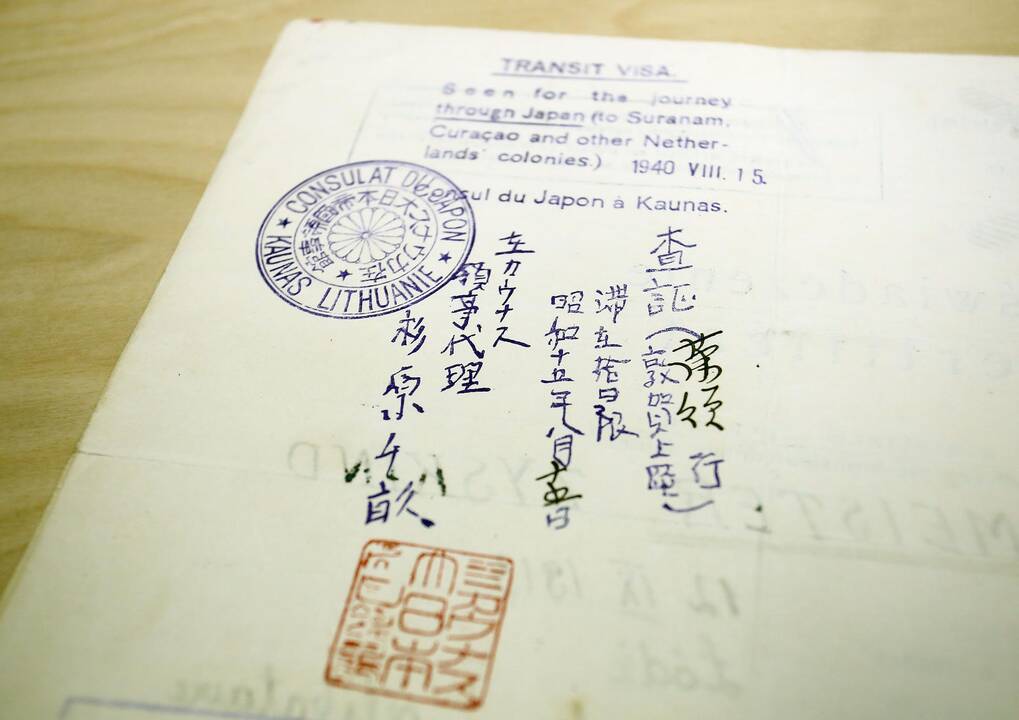 TRANSIT VISA.
Seen for the journey
through Japan (to Suranam,
Curaçao and other Nether-
lands' colonies.) 1940 VIII. 15.
Consul du Japon à Kaunas.
CONSULAT DU JAPON
KAUNAS LITHUANIE
在カウナス大日本帝國領事館
査証
(敦賀上陸)
蘭領行
滞在拾日限
昭和十五年八月十五日
在カウナス
領事代理
杉原千畝
MEISTER
ZYSKIND
12 IX 191
Łódź